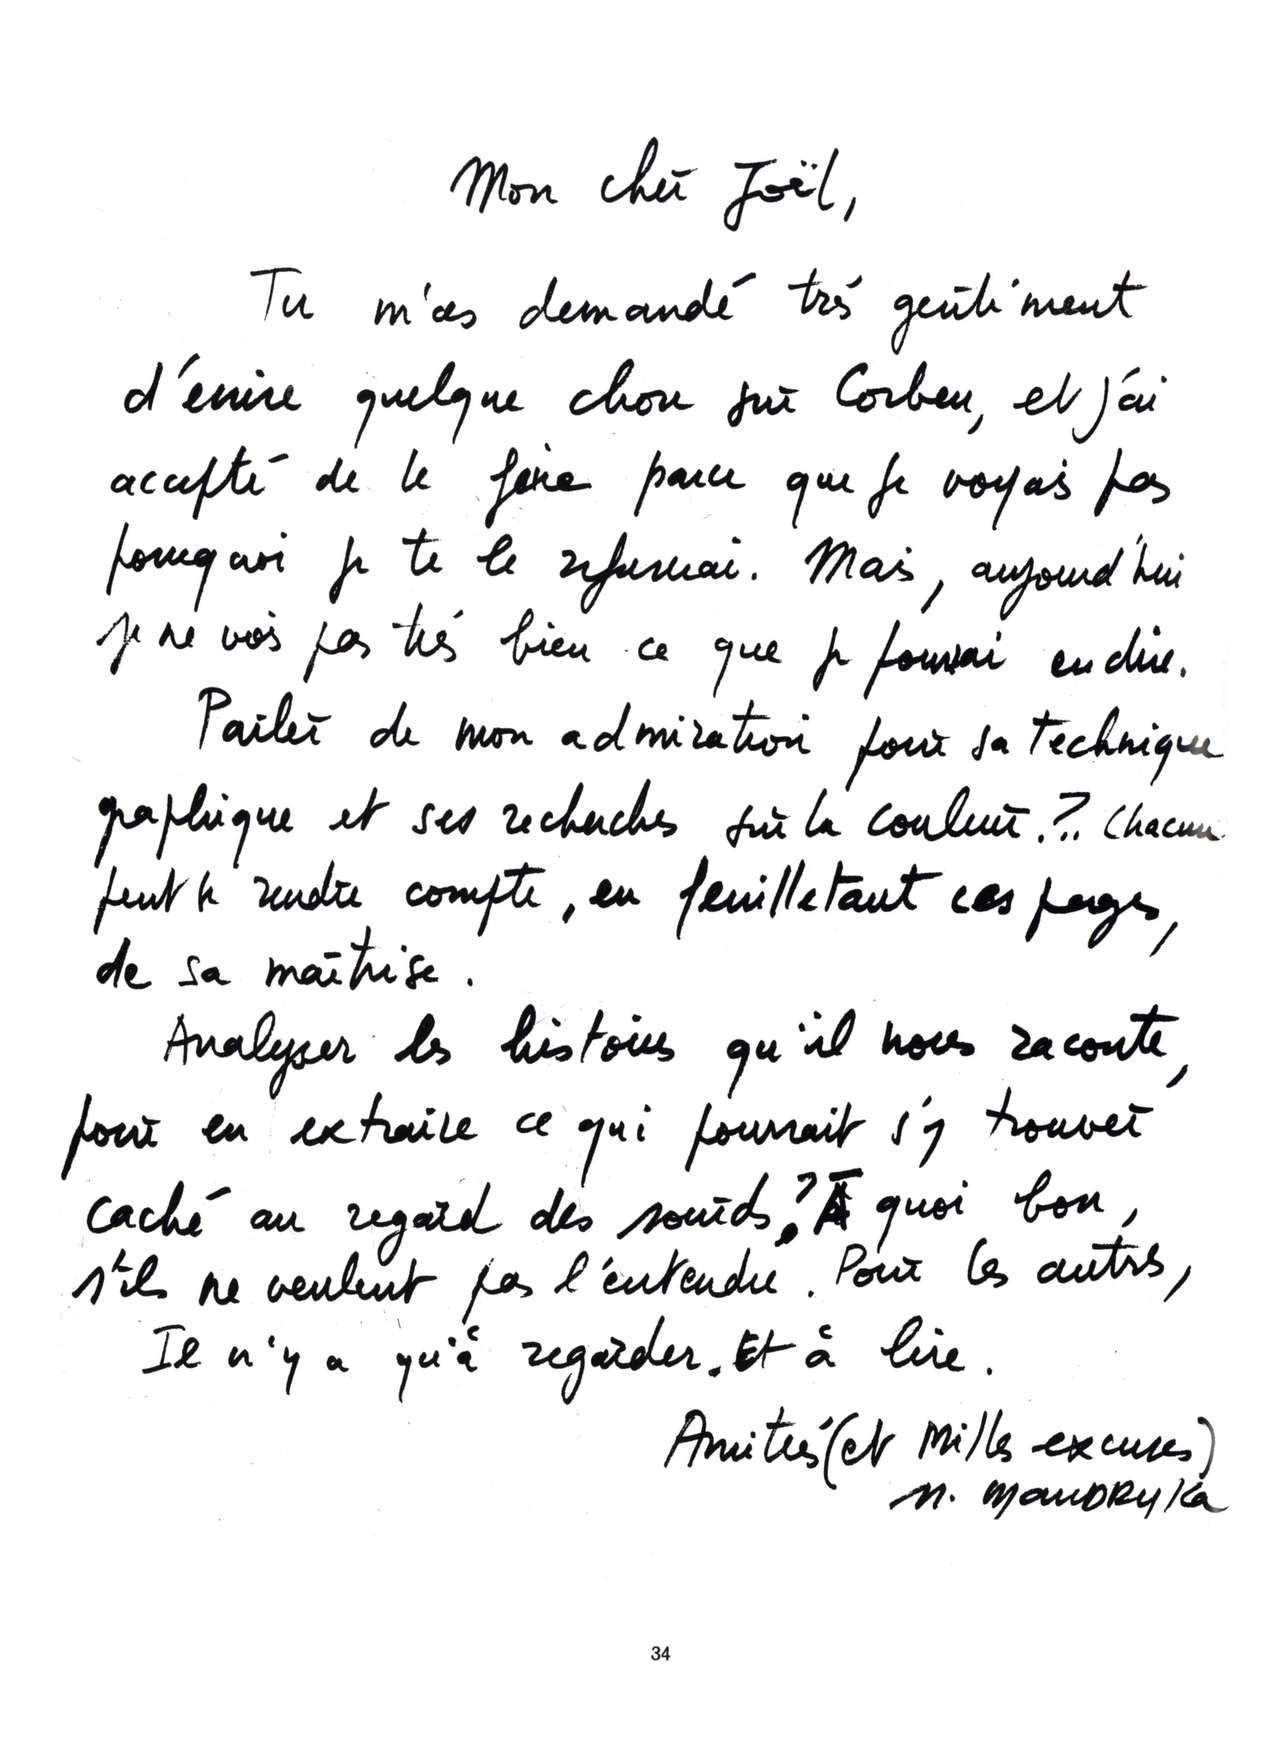 Mon cher Joël,
Tu m'as demandé très gentiment
d'écrire quelque chose sur Corben, et j'ai
accepté de le faire parce que je voyais pas
pourquoi je te le refuserai. Mais, aujourd'hui
je ne vois pas très bien ce que je pourrai en dire.
Parler de mon admiration pour sa technique
graphique et ses recherches sur la couleur?.. Chacun
peut se rendre compte, en feuilletant ces pages,
de sa maîtrise.
Analyser les histoires qu'il nous raconte,
pour en extraire ce qui pourrait s'y trouver
caché au regard des sourds? A quoi bon,
s'ils ne veulent pas l'entendre. Pour les autres,
Il n'y a qu'à regarder. Et à lire.
Amitiés (et Milles excuses)
N. MANDRYKA
34